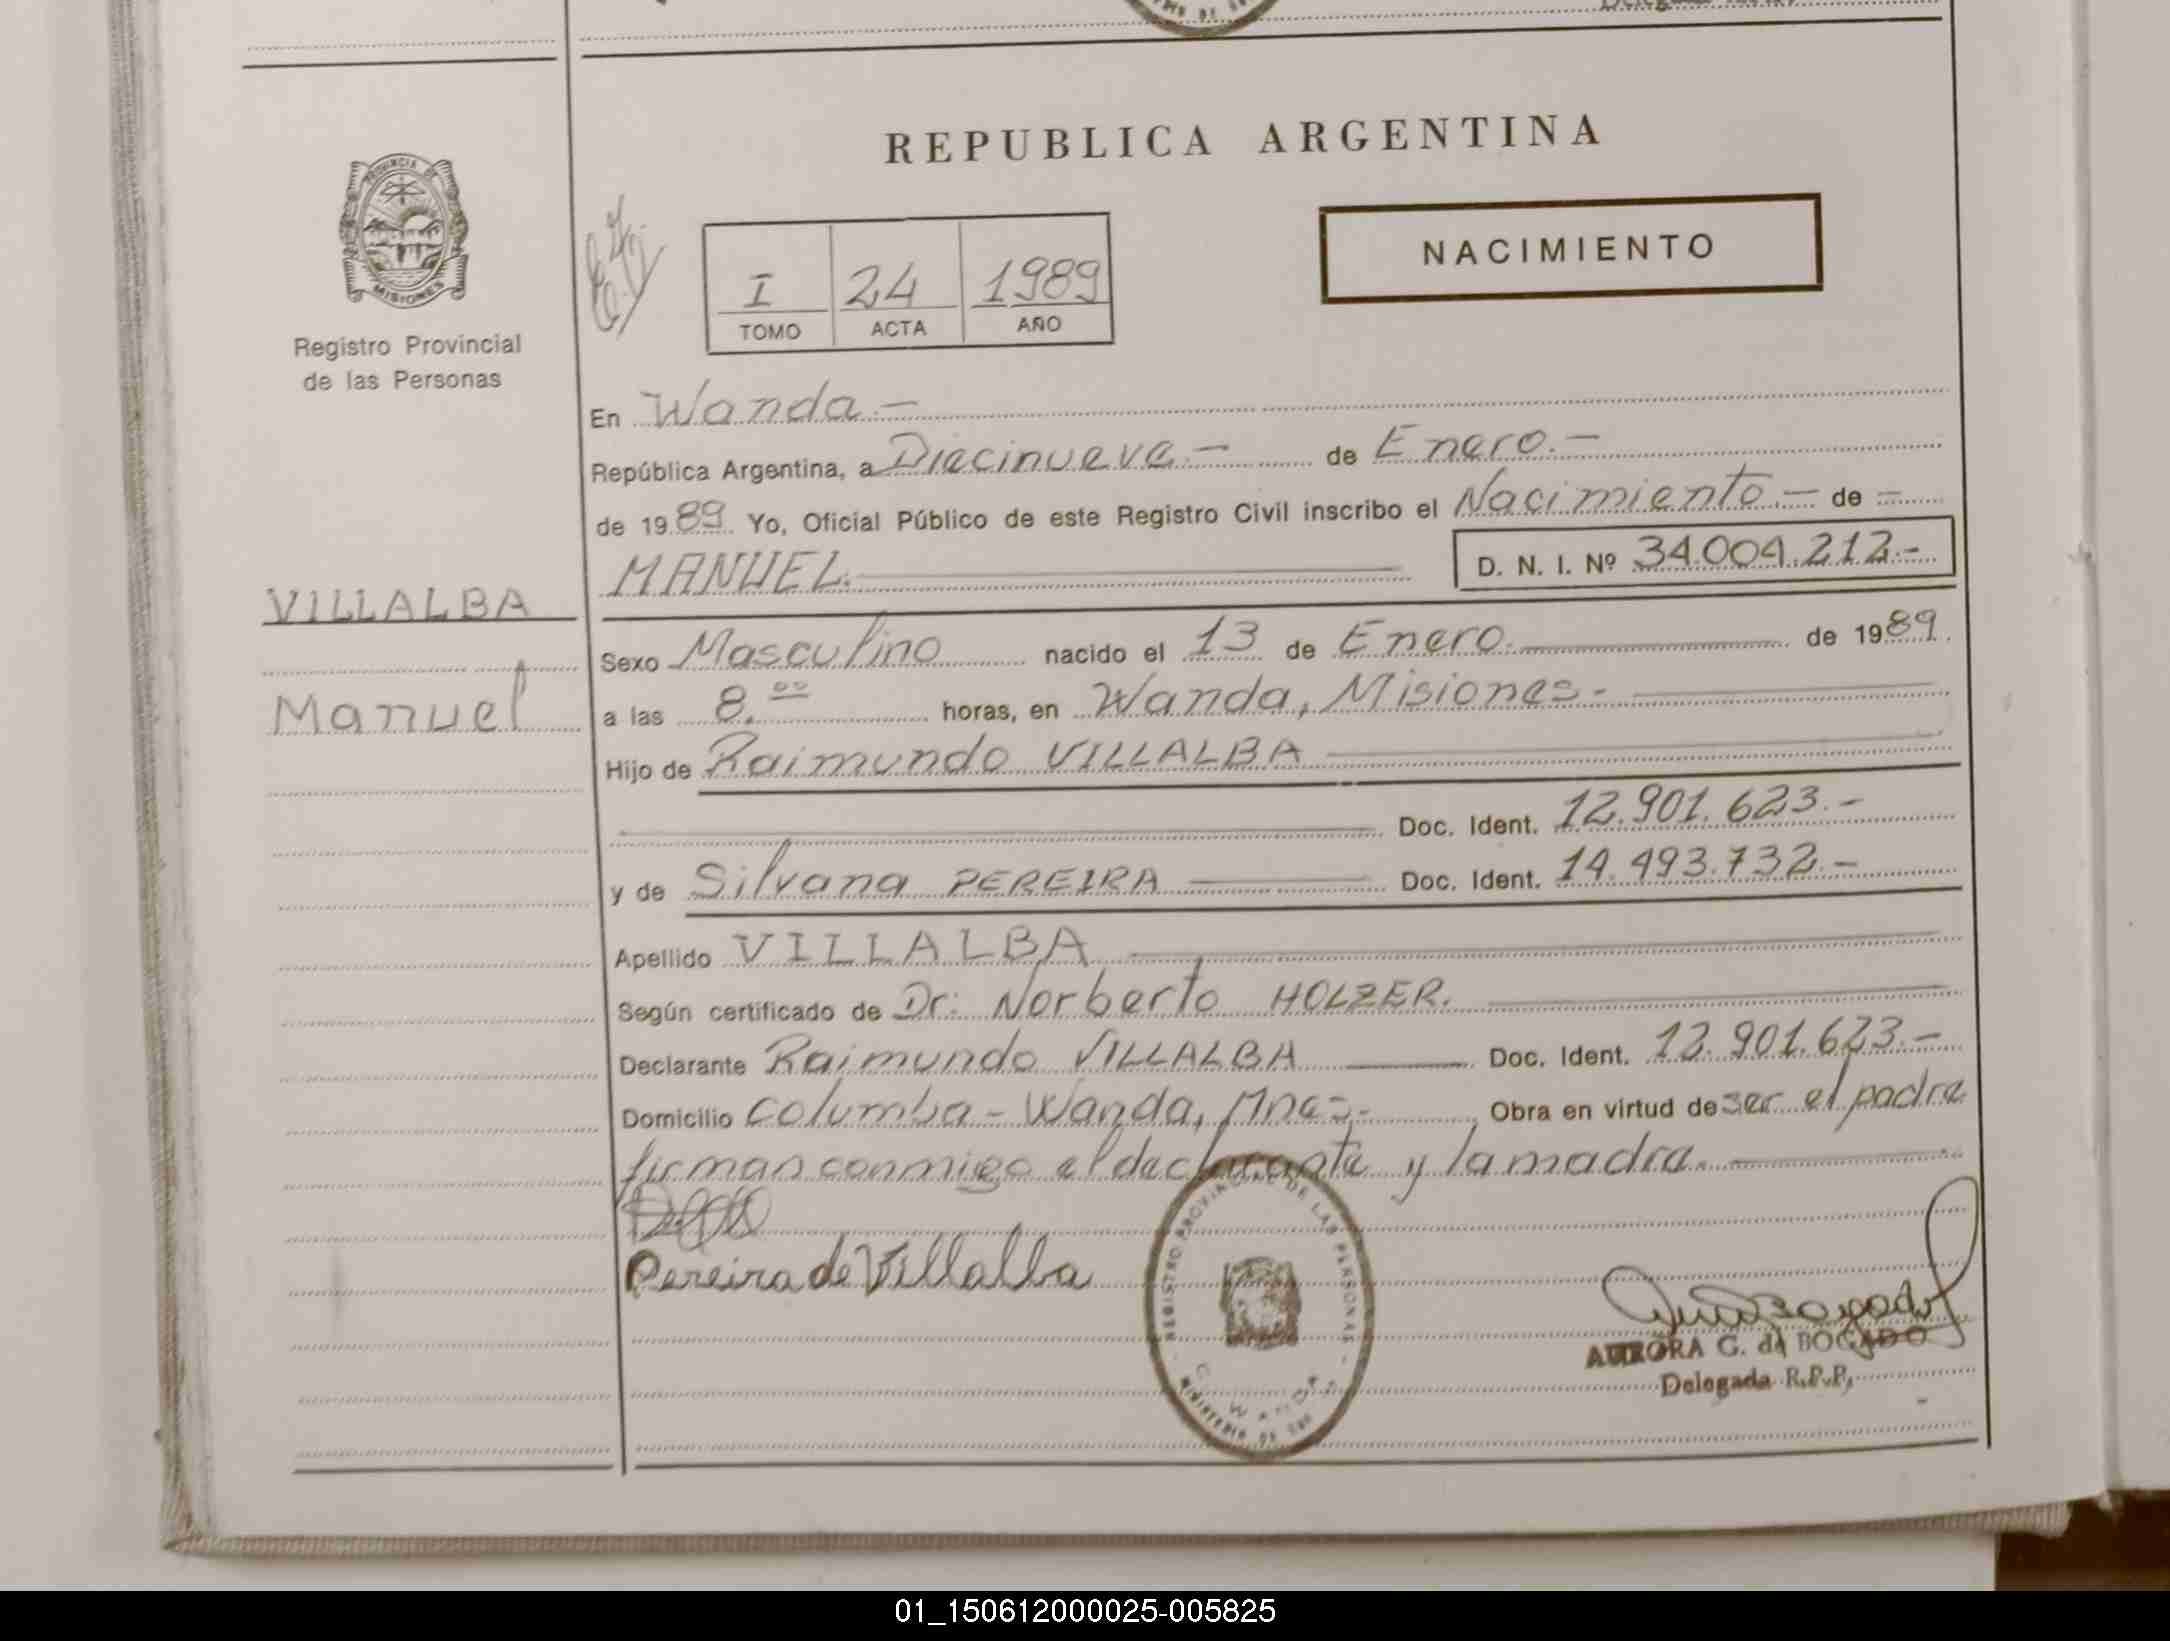 REPUBLICA ARGENTINA
NACIMIENTO
PROVINCIA DE
MISIONES
Registro Provincial
de las Personas
I 24 1989
TOMO ACTA AÑO
En Wanda.-
República Argentina, a Diecinueve.- de Enero.-
de 1989. Yo, Oficial Público de este Registro Civil inscribo el Nacimiento.- de -
MANUEL. D. N. I. Nº 34.004.212.-
VILLALBA
Manuel
Sexo Masculino nacido el 13 de Enero. de 1989.
a las 8.00 horas, en Wanda, Misiones.-
Hijo de Raimundo VILLALBA
Doc. Ident. 12.901.623.-
y de Silvana PEREIRA Doc. Ident. 14.493.732.-
Apellido VILLALBA
Según certificado de Dr: Norberto HOLZER.
Declarante Raimundo VILLALBA Doc. Ident. 12.901.623.-
Domicilio Columba - Wanda, Mnes.- Obra en virtud de ser el padre
firman conmigo el declarante y la madre.
Pereira de Villalba
REGISTRO PROVINCIAL DE LAS PERSONAS
WANDA
MINISTERIO DE
AURORA G. de BOGADO
Delegada R.P.P.
01_150612000025-005825